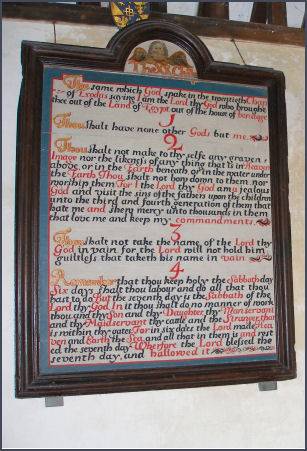 The same which God spake in the twentieth Chap
of Exodus saying I am the Lord thy God who brought
thee out of the Land of Egypt out of the house of bondage
1
Thou shalt have none other Gods but me.
2
Thou shalt not make to thy selfe any graven
Image nor the likeness of any thing that is in Heaven
above, or in the Earth beneath or in the water under
the Earth Thou shalt not bow down to them nor
worship them For I the Lord thy God am a jealous
God and visit the sins of the fathers upon the children
unto the third and fourth generation of them that
hate me and shew mercy unto thousands in them
that love me and keep my commandments.
3
Thou shalt not take the Name of the Lord thy
God in vain for the Lord will not hold him
guiltless that taketh his name in vain
4
Remember that thou keep holy the Sabbath day
Six days shalt thou labour and do all that thou
hast to do But the seventh day is the Sabbath of the
Lord thy God. In it thou shalt do no manner of work
thou and thy Son and thy Daughter thy Manservant
and thy Maidservant thy cattle and the Stranger that
is within thy gates For in six dates the Lord made Hea
ven and Earth the Sea and all that in them is and rest
ed the seventh day Wherefore the Lord blessed the
seventh day, and hallowed it